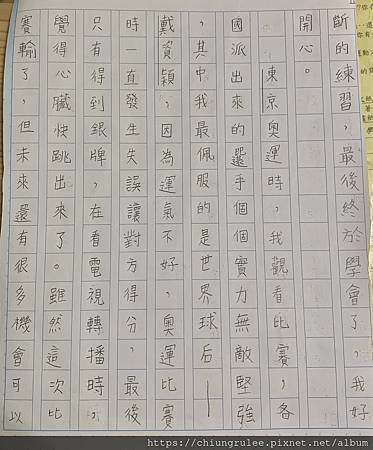 斷的練習，最後終於學會了，我好
開心。
東京奧運時，我觀看比賽，各
國派出來的選手個個實力無敵堅強
，其中我最佩服的是世界球后—
戴資穎，因為運氣不好，奧運比賽
時一直發生失誤讓對方得分，最後
只有得到銀牌，在看電視轉播時，
覺得心臟快跳出來了。雖然這次比
賽輸了，但未來還有很多機會可以
https://chiungrulee.pixnet.net/album